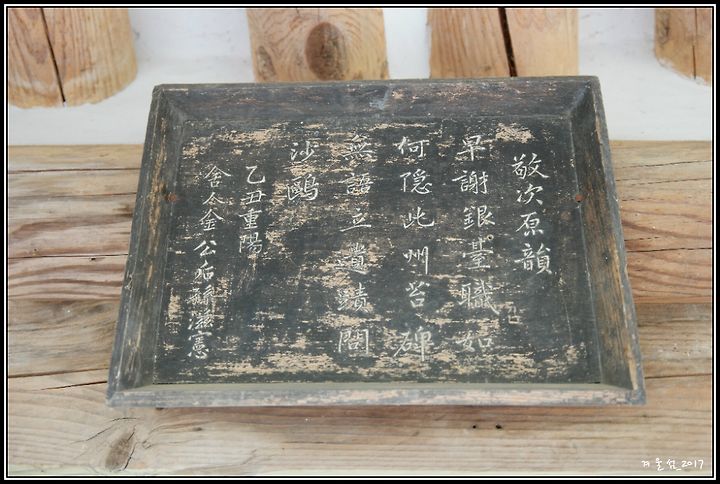 敬次原韻
早謝銀臺職如
何隱此州苔碑
無語立遺蹟問
沙鷗
乙丑重陽
舍人金公后憲
겨울섬_2017